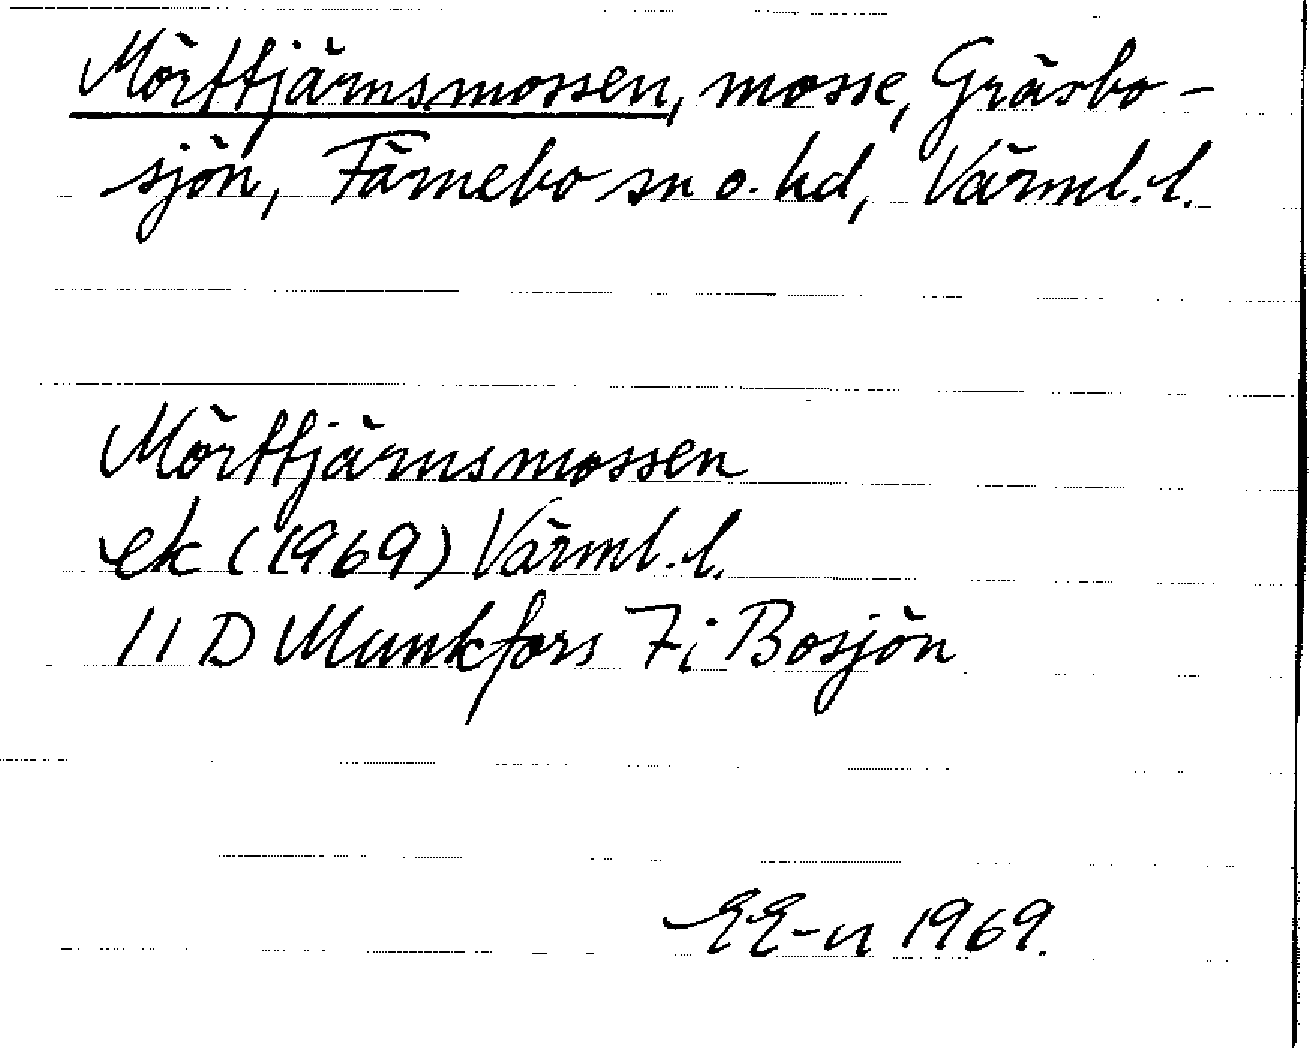 Mörttjärnsmossen, mosse, Gräsbo-
sjön, Färnebo sn o. hd, Värml. l.
Mörttjärnsmossen
ek (1969) Värml. l.
11 D Munkfors 7 i Bosjön
EE-n 1969.